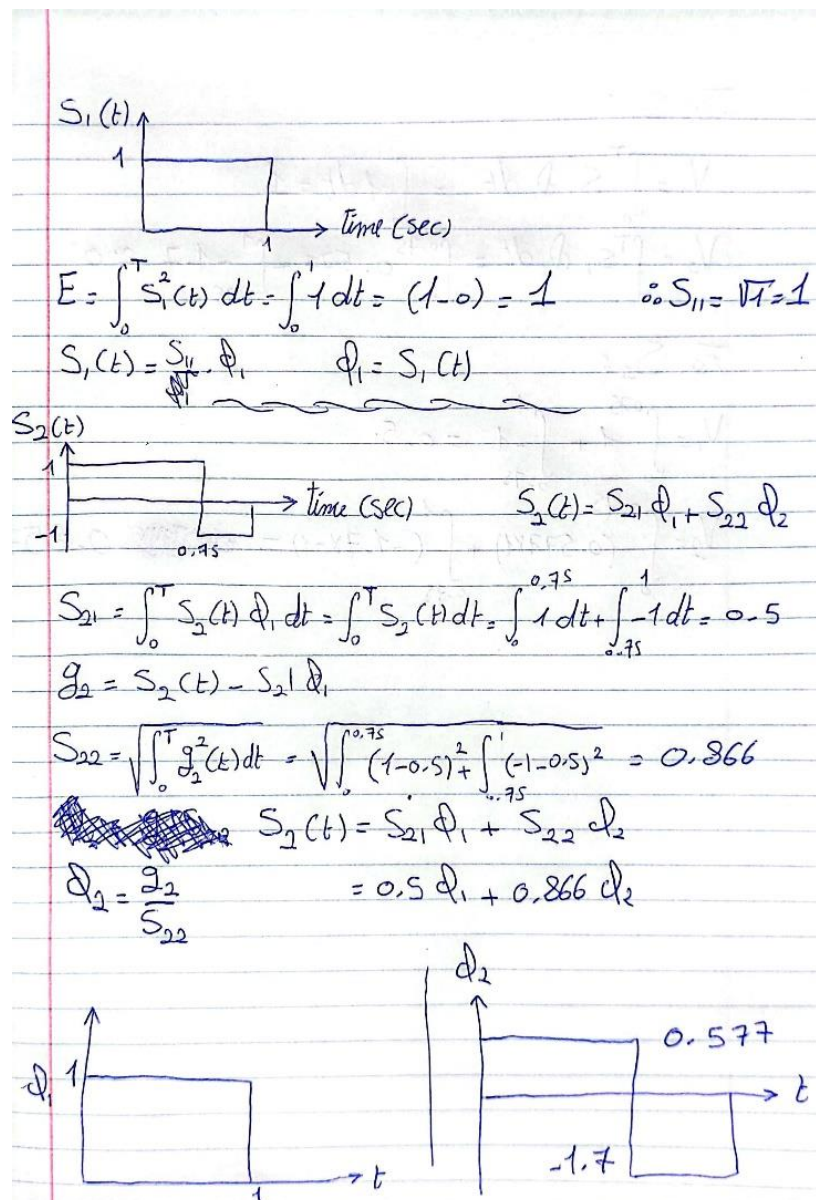 S₁(t)
1
1
time (sec)
E = ∫₀ᵀ S₁²(t) dt = ∫₀¹ 1 dt = (1-0) = 1 ∴ S₁₁ = √1 = 1
S₁(t) = S₁₁ . ϕ₁ ϕ₁ = S₁(t)
S₂(t)
1
time (sec)
-1
0.75
S₂(t) = S₂₁ ϕ₁ + S₂₂ ϕ₂
S₂₁ = ∫₀ᵀ S₂(t) ϕ₁ dt = ∫₀ᵀ S₂(t) dt = ∫₀^0.75 1 dt + ∫_0.75^1 -1 dt = 0.5
g₂ = S₂(t) - S₂1 ϕ₁
S₂₂ = √(∫₀ᵀ g₂²(t) dt) = √(∫₀^0.75 (1-0.5)² + ∫_0.75^1 (-1-0.5)²) = 0.866
S₂(t) = S₂₁ ϕ₁ + S₂₂ ϕ₂
ϕ₂ = g₂/S₂₂ = 0.5 ϕ₁ + 0.866 ϕ₂
ϕ₁
1
1
t
ϕ₂
0.577
t
-1.7